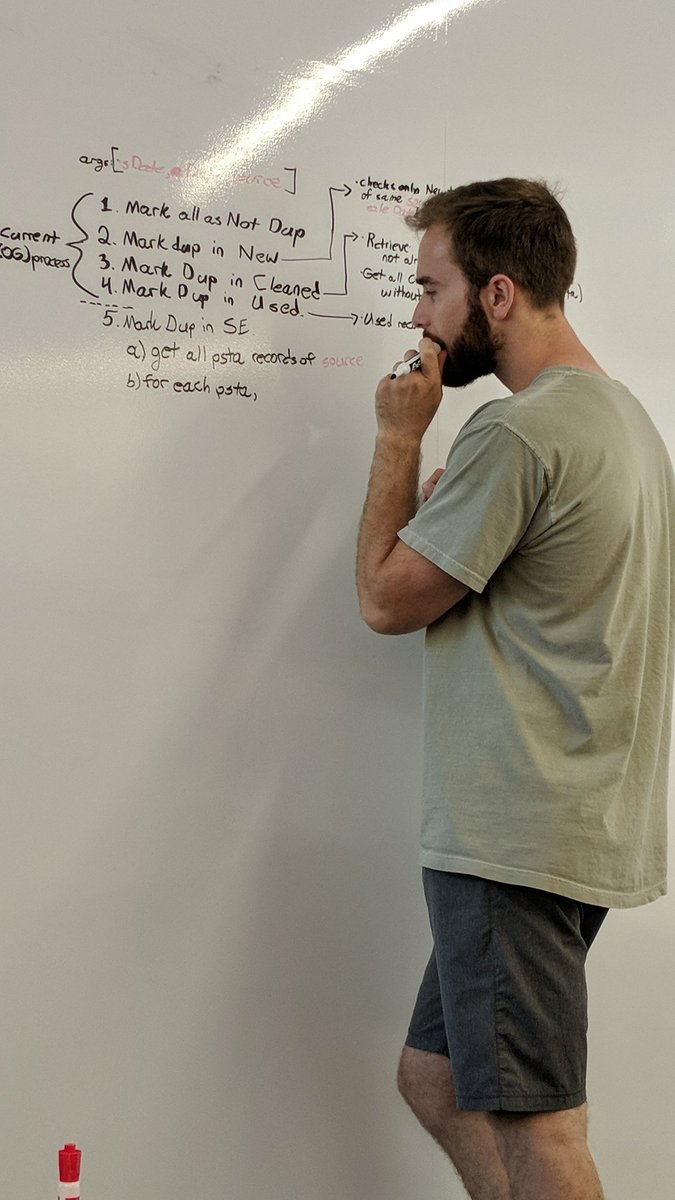 args:[sDate, source]
Current
(OG) process
1. Mark all as Not Dup
2. Mark dup in New
3. Mark Dup in Cleaned
4. Mark Dup in Used.
5. Mark Dup in SE.
a) get all psta records of source
b) for each psta,
·checks only New
of same
·Retrieve
not
·Get all
without
·Used